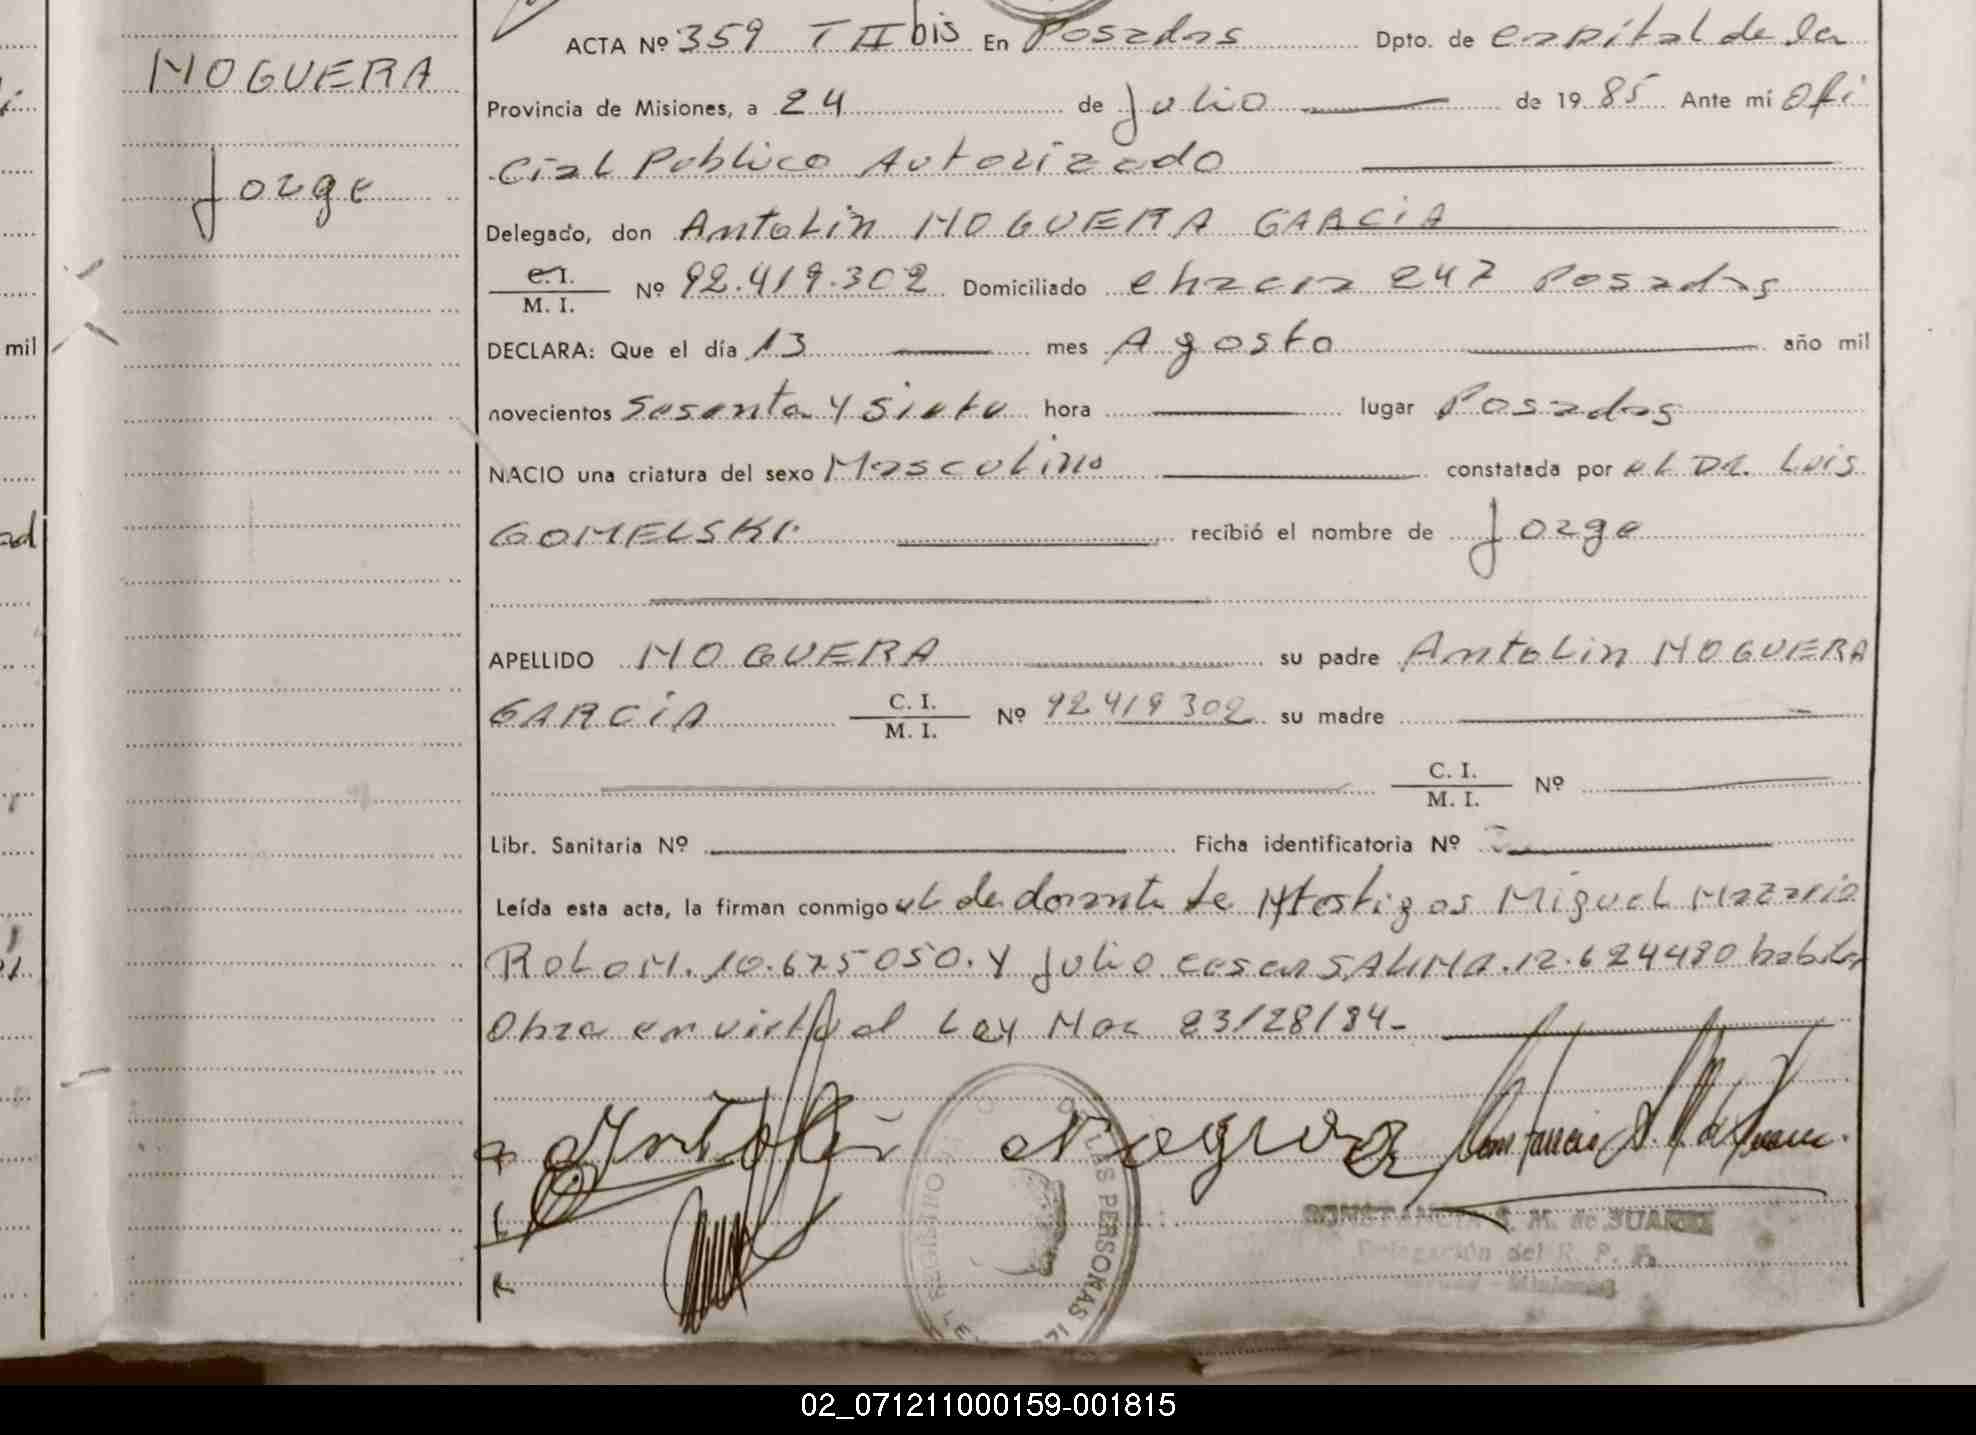 NOGUERA
Jorge
ACTA Nº 359 T II bis En Posadas Dpto. de capital de la
Provincia de Misiones, a 24 de Julio de 1985 Ante mí Ofi
cial Publico Autorizado
Delegado, don Antolin NOGUERA GARCIA
C.I. M. I. Nº 92.419.302 Domiciliado chacra 247 Posadas
DECLARA: Que el día 13 mes Agosto año mil
mil
novecientos Sesenta y Siete hora lugar Posadas
NACIO una criatura del sexo Masculino constatada por el DR. Luis
GOMELSKI. recibió el nombre de Jorge
APELLIDO NOGUERA su padre Antolin NOGUERA
GARCIA C. I. M. I. Nº 92 419 302 su madre
C. I. M. I. Nº
Libr. Sanitaria Nº Ficha identificatoria Nº
Leída esta acta, la firman conmigo el testigos Miguel
10.675050. Y Julio cesar 12.624480
Obra en virtud Ley Nac 23/28/84-
Antolin Noguera
REGISTRO DE LAS PERSONAS
CONSTANCIA S. M. de SUAREZ
Delegación del R. P. P.
Misiones
02_071211000159-001815